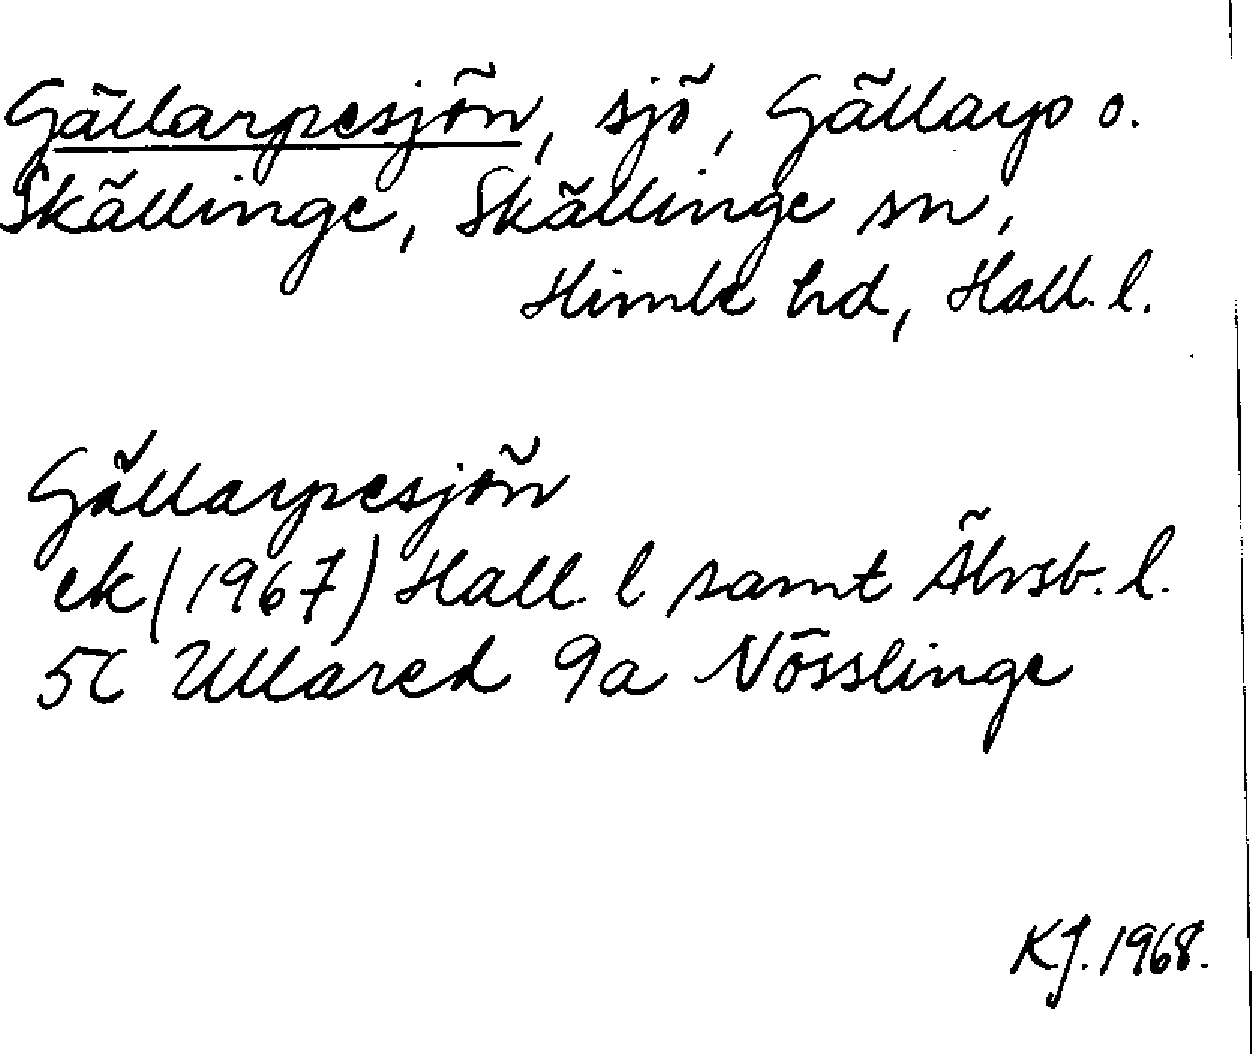 Gällarpesjön, sjö, Gällarp o.
Skällinge, Skällinge sn,
Himle hd, Hall. l.
Gällarpesjön
ek (1967) Hall. l samt Älvsb. l.
5C Ullared 9a Nösslinge
KJ. 1968.